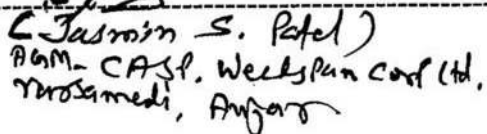 (Jasmin S. Patel)
AGM- CASP. Welspun Corp Ltd.
Versamedi, Anjar